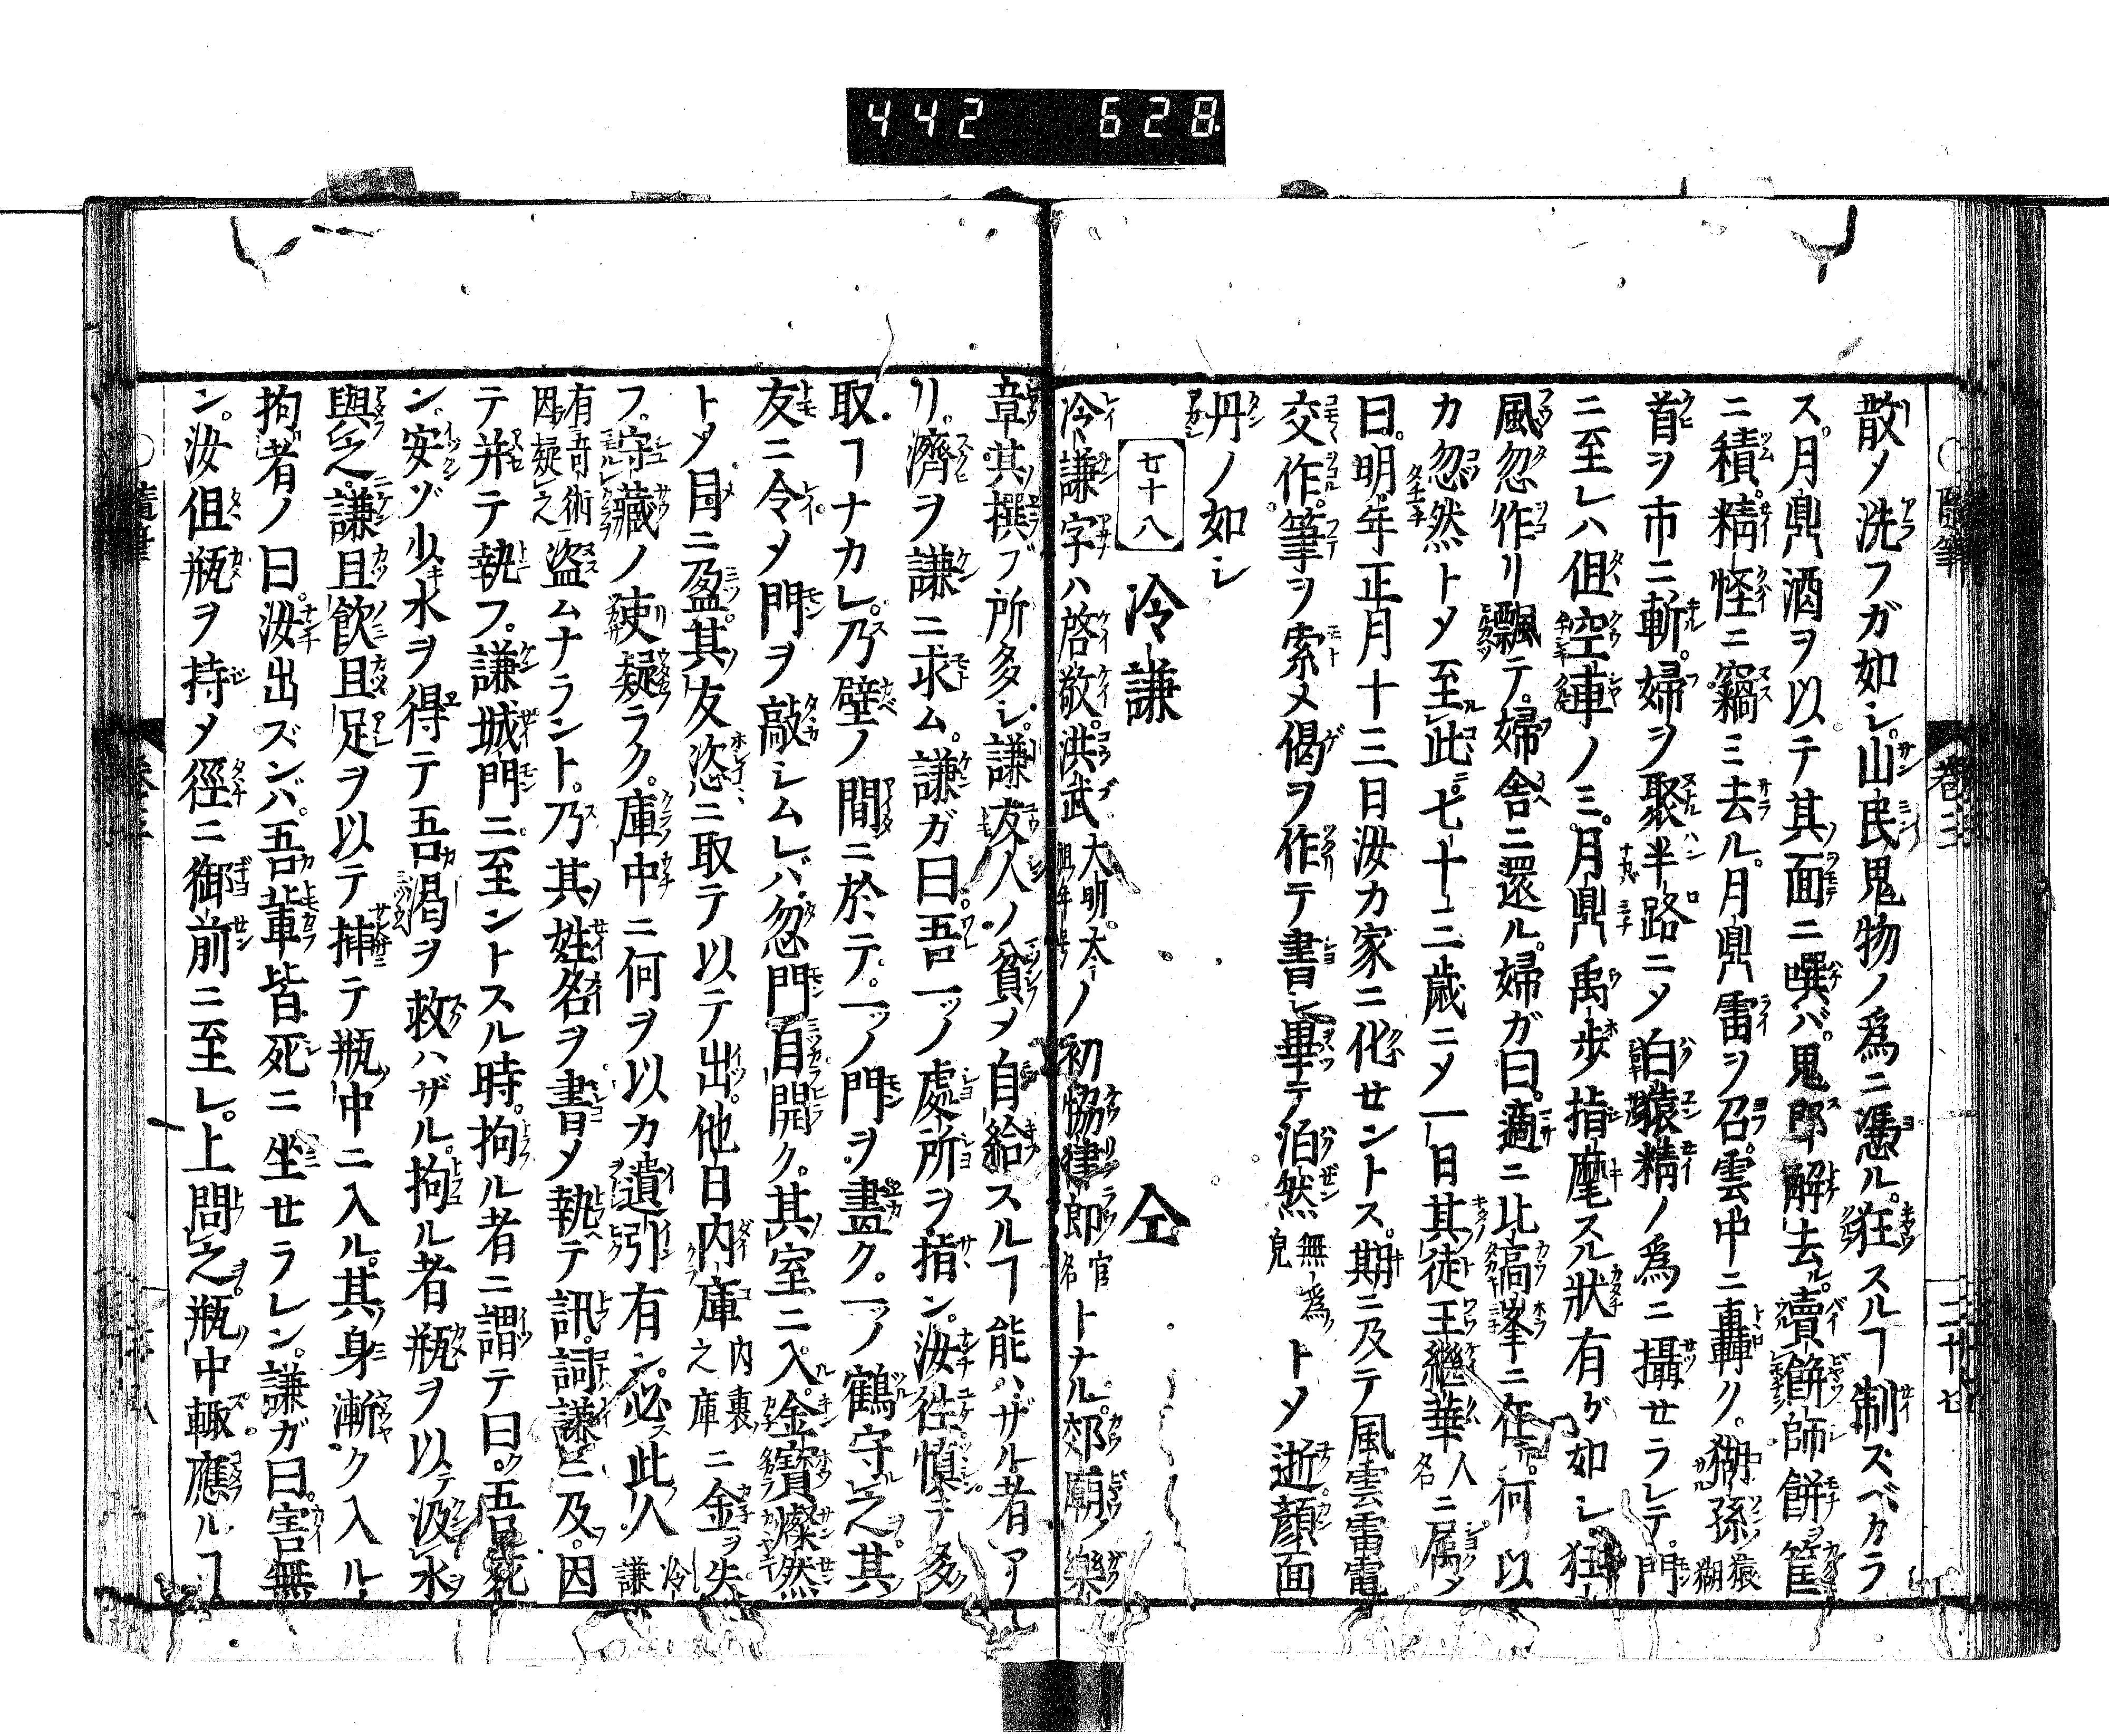 442 628
隨筆 卷三 二十七
散メ洗フガ如シ。山民鬼物ノ為ニ憑ル。狂スルヿ制スベカラ
ス。月鼎酒ヲ以テ其面ニ噀バ。鬼即解去ル。賣餅師餅筐
ニ積。精怪ニ竊ミ去ル。月鼎雷ヲ召。雲中ニ轟ク。猢孫猿猢
首ヲ市ニ斬。婦ヲ聚半路ニメ白猿精ノ為ニ攝セラレテ。門
ニ至レハ但空車ノミ。月鼎禹歩指麾スル狀有ガ如シ狂
風忽作リ飄テ。婦舎ニ還ル。婦ガ曰。適ニ北高峯ニ在。何以
カ忽然トメ至此。七十三歳ニメ一日其徒王繼華人名ニ属メ
曰。明年正月十三日汝カ家ニ化セントス。期ニ及テ風雲雷電
交作。筆ヲ索メ偈ヲ作テ書シ畢テ泊然無為皃トメ逝顔面
丹ノ如シ
七十八 冷謙 仝
冷謙字ハ啓敬。洪武大明太祖年号ノ初協律郎官名トナル。郊廟ノ樂
章其撰ブ所多シ。謙友人ノ貧メ自給スルヿ能ハザル者アー
リ。濟ヲ謙ニ求ム。謙ガ曰。吾一ッノ處所ヲ指ン。汝往慎テ多
取ヿナカレ。乃壁ノ間ニ於テ。一ッノ門ヲ畫ク。一ッノ鶴守之其
友ニ令メ門ヲ敲シムレバ。忽門自開ク。其室ニ入。金寶燦然
トメ目ニ盈。其友恣ニ取テ以テ出。他日内庫内裏之庫ニ金ヲ失
フ。守藏ノ吏疑ラク。庫中ニ何ヲ以カ遺引有ン。必此人冷謙
有奇術因疑之盜ムナラント。乃其姓名ヲ書メ執テ訊。詞謙ニ及。因
テ并テ執フ。謙城門ニ至ントスル時。拘ル者ニ謂テ曰。吾死
ン。安ゾ少水ヲ得テ吾渇ヲ救ハザル。拘ル者瓶ヲ以テ汲水
與之。謙且飲且足ヲ以テ挿テ瓶中ニ入ル。其身漸ク入ル
拘者ノ曰。汝出ズンバ。吾輩皆死ニ坐セラレン。謙ガ曰。害無
ン。汝但瓶ヲ持メ徑ニ御前ニ至レ。上問之瓶中輙應ルヿ
隨筆 卷三